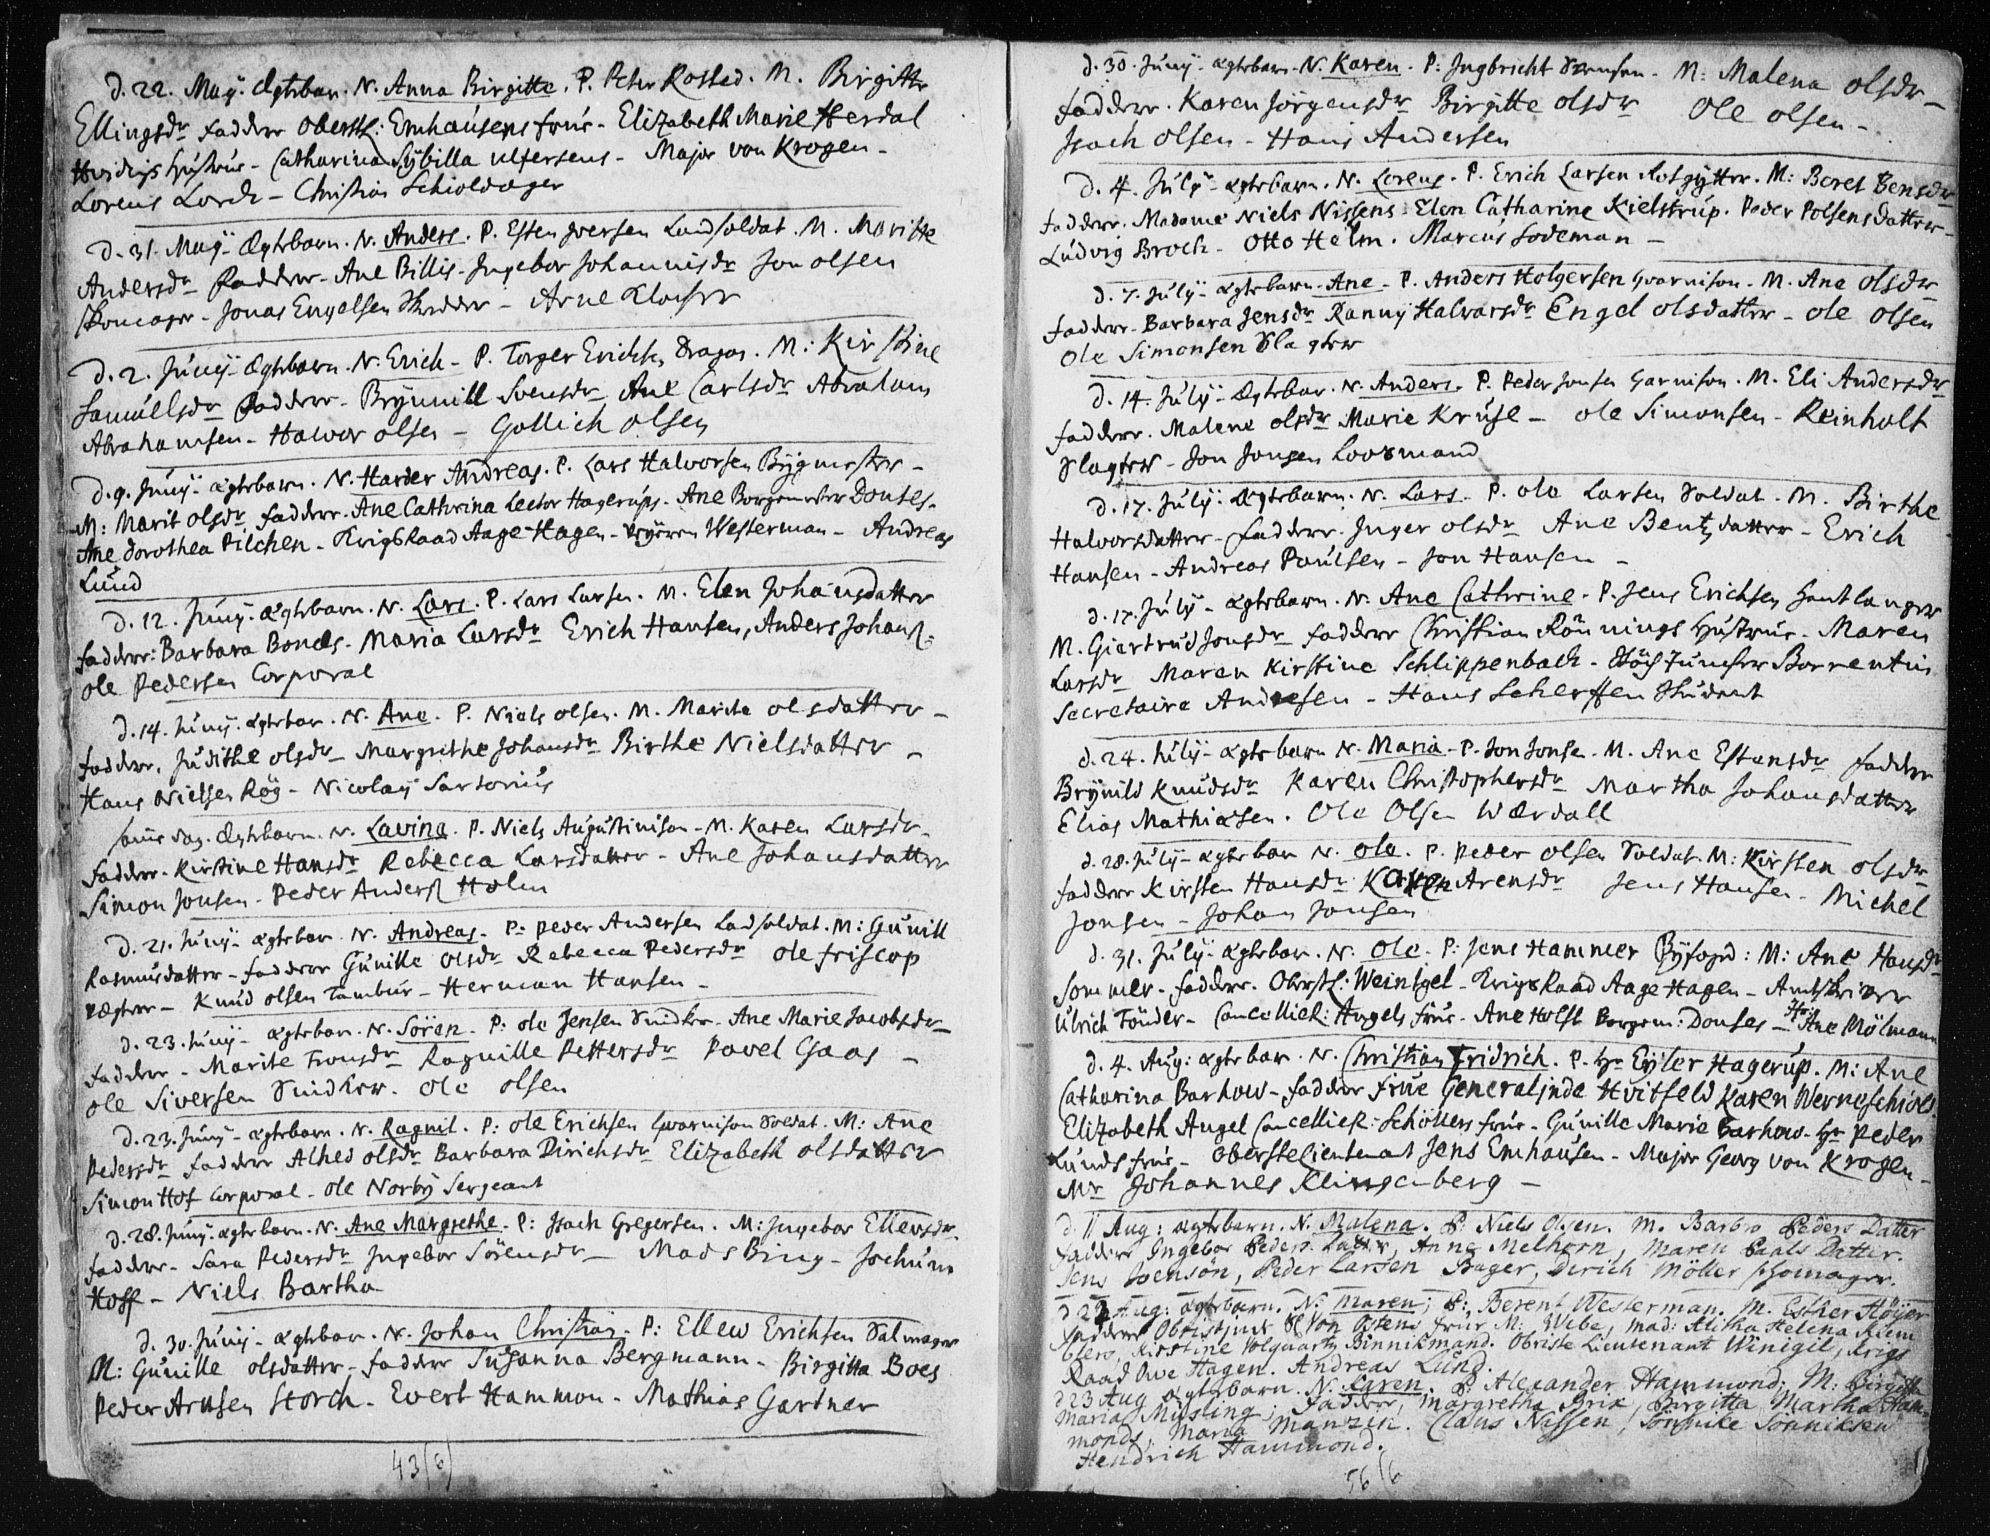 d. 22. Maÿ. Ægtebarn. N. Anna Birgitte. P. Peter Rosted. M. Birgitte
Ellingsdr Faddere Oberstl: Emhausens frue - Elizabeth Marie Herdal
Hustrue - Catharina Sÿbilla Ulfersens - Major von Krogen -
Lorens Lorch - Christian Schioldager
d. 31. Maÿ Ægtebarn. N. Anders. P. Esten Iversen Landsoldat. M. Maritte
Andersdr Faddere - Ane Billis - Ingebor Johannisdr Jon olsen
Skomager - Jonas Engelsen Skredder - Arne Klocker
d. 2. Junÿ Ægtebarn. N: Erich - P. Torger Erichsen Dragon. M: Kirstine
Samuelsdr Faddere - Brÿnnill Svensdr Ane Carlsdr Abraham
Abrahamsen - Halvor olsen - Gollich olsen
d. 9. Junÿ - ægtebarn. N. Harder Andreas. P. Lars Halvorsen Bÿgmester -
M: Marit olsdr Faddere. Ane Cathrina Lector Hagerups. Ane Borgemester Donses.
Ane Dorothea Pilchen - Krigsraad Aage Hagen - Westerman - Andreas
Lund
d. 12. Junÿ. ægtebarn. N. Lars. P. Lars Larsen. M. Elen Johansdatter
Faddere: Barbara Bondes. Maria Larsdr Erich Hansen, Anders Johans:
ole Pedersen Corporal
d. 14. Junÿ. ægtebarn. N. Ane. P. Niels olsen. M. Marite olsdatter -
Faddere. Judithe olsdr - Margrethe Johansdr Birthe Nielsdatter -
Hans Nielsen Röÿ - Nicolaÿ Sartorius
samme dag. Ægtebarn. N. Lavina. P. Niels Augustinison - M. Karen Larsdr.
Faddere - Kirstine Hansdr Rebecca Larsdatter - Ane Johansdatter
Simon Jonsen - Peder Anders Holm
d. 21. Junÿ - ægtebarn. N. Andreas. P: Peder Andersen Landsoldat. M: Gunill
Rasmusdatter - Faddere Gunille olsdr Rebecca Pedersdr ole friscop
vægter - Knud olsen Tambur - Herman Hansen -
d. 23. Junÿ - ægtebarn. N. Sören. P: ole Jensen Snidker - Ane Marie Jacobsdr
Faddere - Marite Tronsdr Ragnille Pettersdr Povel Gaas -
ole Siversen Snidker. ole olsen
d. 23. Junÿ - ægtebarn. N. Ragnil. P: ole Erichsen Gvarnison Soldat. M: Ane
Pedersdr Faddere Alhed olsdr Barbara Dirichsdr Elizabeth olsdatter
Simon Hof Corporal - ole Norbÿ Sergeant
d. 28. Junÿ. ægtebarn. N. Ane Margrethe. P: Isach Gregersen. M: Ingebor Ellevsdr.
Faddere - Sara Pedersdr Ingebor Sörensdr - Mads Bing - Jochum
Hoff - Niels Bartho
d. 30. Junÿ - ægtebarn. N. Johan Christian. P: Ellew Erichsen Salmager
M: Gunille olsdatter - Faddere Susanna Bergmann - Birgitta Boes
Peder Arnsen Storch - Evert Hammon - Mathias Gartner
43(6)
d. 30. Junÿ. ægtebarn. N. Karen. P: Ingbricht Svensen. M: Malena olsdr
Faddere. Karen Jörgensdr Birgitte olsdr Ole olsen -
Isach olsen - Hans Andersen
d. 4. Julÿ - ægtebarn. N. Lorens. P. Erich Larsen M: Beret Bensdr
Faddere. Madame Niels Nissens - Elen Catharine Kielstrup. Peder Polsens datter -
Ludvig Broch - Otto Helm. Marcus Sodeman -
d. 7. Julÿ - ægtebarn. Ane - P. Anders Holgersen Gvarnison - M. Ane olsdr
Faddere - Barbara Jensdr Ranny Halvarsdr Engel olsdatter - ole olsen
Ole Simonsen Slagter
d. 14. Julÿ - Ægtebarn. N. Anders. P. Peder Jonsen Garnison. M. Eli Andersdr
Faddere. Malene olsdr Marie Kruse - ole Simonsen - Reinholt
Slagter - Jon Jonsen Loosmand
d. 17. Julÿ: Ægtebarn. N. Lars. P. ole Larsen Soldat. M. Birthe
Halvorsdatter - Faddere. Inger olsdr Ane Bentzdatter - Erich
Hansen - Andreas Paulsen - Jon Hansen -
d. 17. Julÿ - ægtebarn. N. Ane Cathrine. P. Jens Erichsen Hantlanger
M. Giertrud Jonsdr Faddere Christian Rönnings Hustrue - Maren
Larsdr Maren Kirstine Schlippenbach - Borrentin
Secretaire Andresen - Hans Scherffen Student
d. 24. Julÿ - ægtebarn N. Maria - P. Jon Jonse. M. Ane Estensdr Faddere
Brÿnild Knudsdr Karen Christophersdr Martha Johansdatter
Elias Mathiasen. Ole Olsen Wærdall
d. 28. Julÿ - ægtebarn N. ole. P. Peder olsen Soldat. M: Kirsten olsdr
Faddere Kirsten Hansdr Karen Arensdr Jens Hansen. Michel
Jonsen - Johan Jonsen
d. 31. Julÿ - ægtebarn. N. Ole. P: Jens Hammer Bÿfogd: M: Ane Hansdr
Sommer - Faddere. Oberstl: Weinigel - Krigsraad Aage Hagen - Amtskriver
Ulrich Tönder - Cancellier: Angels frue - Ane Holst Borgem: Donses - Ane Mölmann
d. 4. Aug: ægtebarn. N. Christian Fridrich. P. Hr Eÿler Hagerup. M: Ane
Catharina Barhow - Faddere frue Generalinde Hvitfeld Karen Werneschiold
Elizabeth Angel Cancellier: Schöllers frue - Gunille Marie Barhow - Hr Peder
Lunds frue - Oberstelieutenant Jens Emhausen - Major Georg von Krogen -
Mr Johannes Klingenberg -
d. 11 Aug: ægtebarn. N. Malena. P. Niels Olsen. M. Barbro Peders Datter
Faddere Ingebor Peders Datter, Anne Melhorn, Maren Paals Datter.
Jens Svensön, Peder Larsen Bager, Dirich Möller skomager.
d 22 Aug: ægtebarn. N. Maren; P: Berent Westerman. M. Esther Höÿer
Faddere Obristlnt Von Ostens frue M: Wibe, Mad: Alitha Helena
Kirstine Volquartz Binnikmand. Obriste Lieutenant Winigil, Krigs
Raad Ove Hagen. Andreas Lund.
d 23 Aug ægtebarn. N. Karen. P: Alexander Hammond. M: Birgitta
Maria Müsling; Faddere, Margretha Brix, Birgitta Martha Ham-
monds, Maria Manzin. Claus Nissen, Sönnike Sönniksen
Hendrich Hammond.
56(6